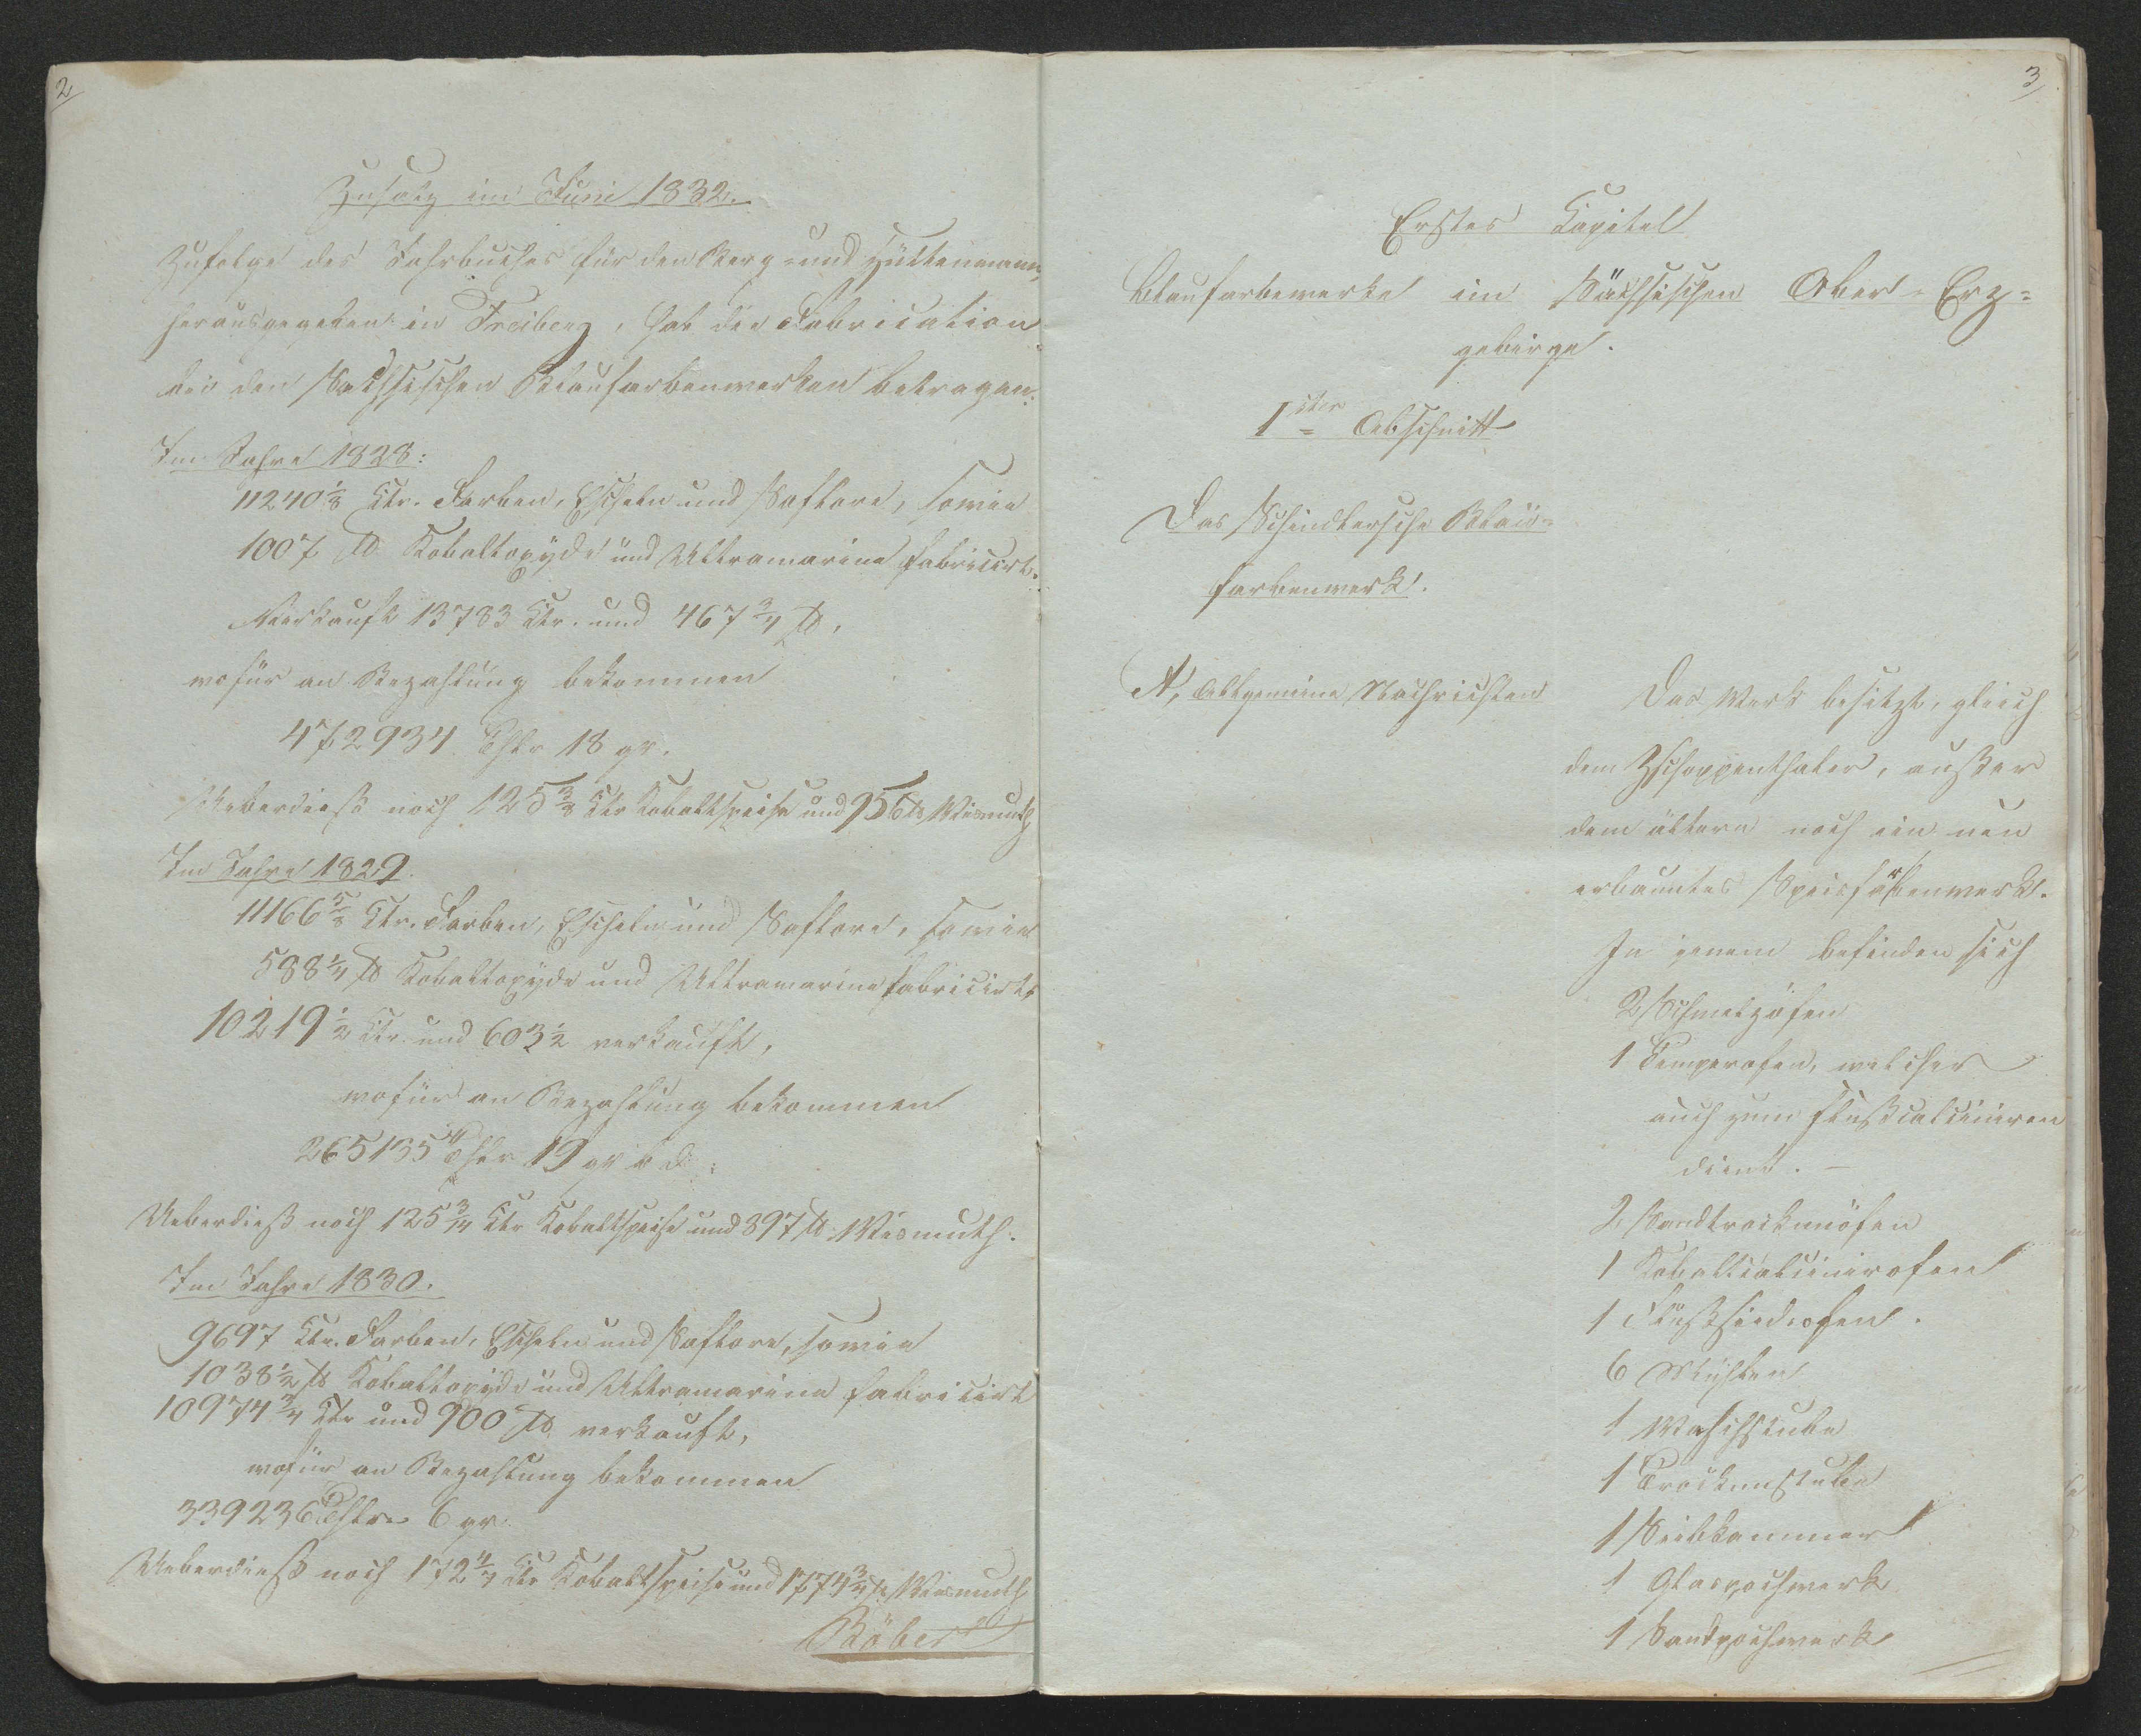 2
Zusatz im Juni 1832.
Zufolge des Jahrbuches für den Berg- und Hüttenmann,
herausgegeben in Freiberg, hat die Fabrication
bei den Sächsischen Blaufarbenwerken betragen:
Im Jahre 1828:
11240 1/8 Ctr. Farben, Escheln und Saflore, sowie
1007 ℔ Kobaltoxyde und Ultramarine fabricirt.
Verkauft 13783 Ctr. und 467 3/4 ℔,
wofür an Bezahlung bekommen
472934 Thlr 18 gr.
Ueberdieß noch 125 3/8 Ctr Kobaltspeise und ℔ Wismuth
Im Jahre 1829.
11166 5/8 Ctr. Farben, Escheln und Saflore, sowie
588 1/4 ℔ Kobaltoxyde und Ultramarine fabricirt,
10219 1/2 Ctr. und 603 1/2 verkauft,
wofür an Bezahlung bekommen
265135 Thlr 19 gr
Ueberdieß noch 125 3/4 Ctr Kobaltspeise und 397 ℔ Wismuth.
Im Jahre 1830.
9697 Ctr. Farben, Escheln und Saflore, sowie
1038 1/2 ℔ Kobaltoxyde und Ultramarine fabricirt
10974 3/4 Ctr und 900 ℔ verkauft,
wofür an Bezahlung bekommen
339236 Thlr. 6 gr.
Ueberdieß noch Ctr Kobaltspeise und 1774 3/4 ℔ Wismuth
Röber
3
Erstes Capitel
Blaufarbewerke im Sächsischen Ober-Erz=
gebirge.
1ster Abschnitt
Das Schindlersche Blau=
farbenwerk.
A, Allgemeine Nachrichten
Das Werk besitzt, gleich
dem Zschoppenthaler, außer
dem ältern noch ein neu
erbautes Speisfarbenwerk.
In jenem befinden sich
2 Schmelzöfen
1 Temperofen, welcher
auch zum Flußcalciniren
dient. —
2 Sandtrockenöfen
1 Kobaltcalcinirofen
1 Flußsiedeofen.
6 Mühlen
1 Waschstube
1 Trockenstube
1 Siebkammer
1 Glaspochwerk
1 Sandpochwerk